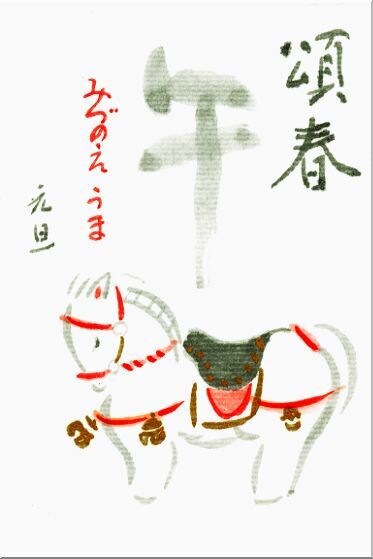 頌春
午
みづのえうま
元旦